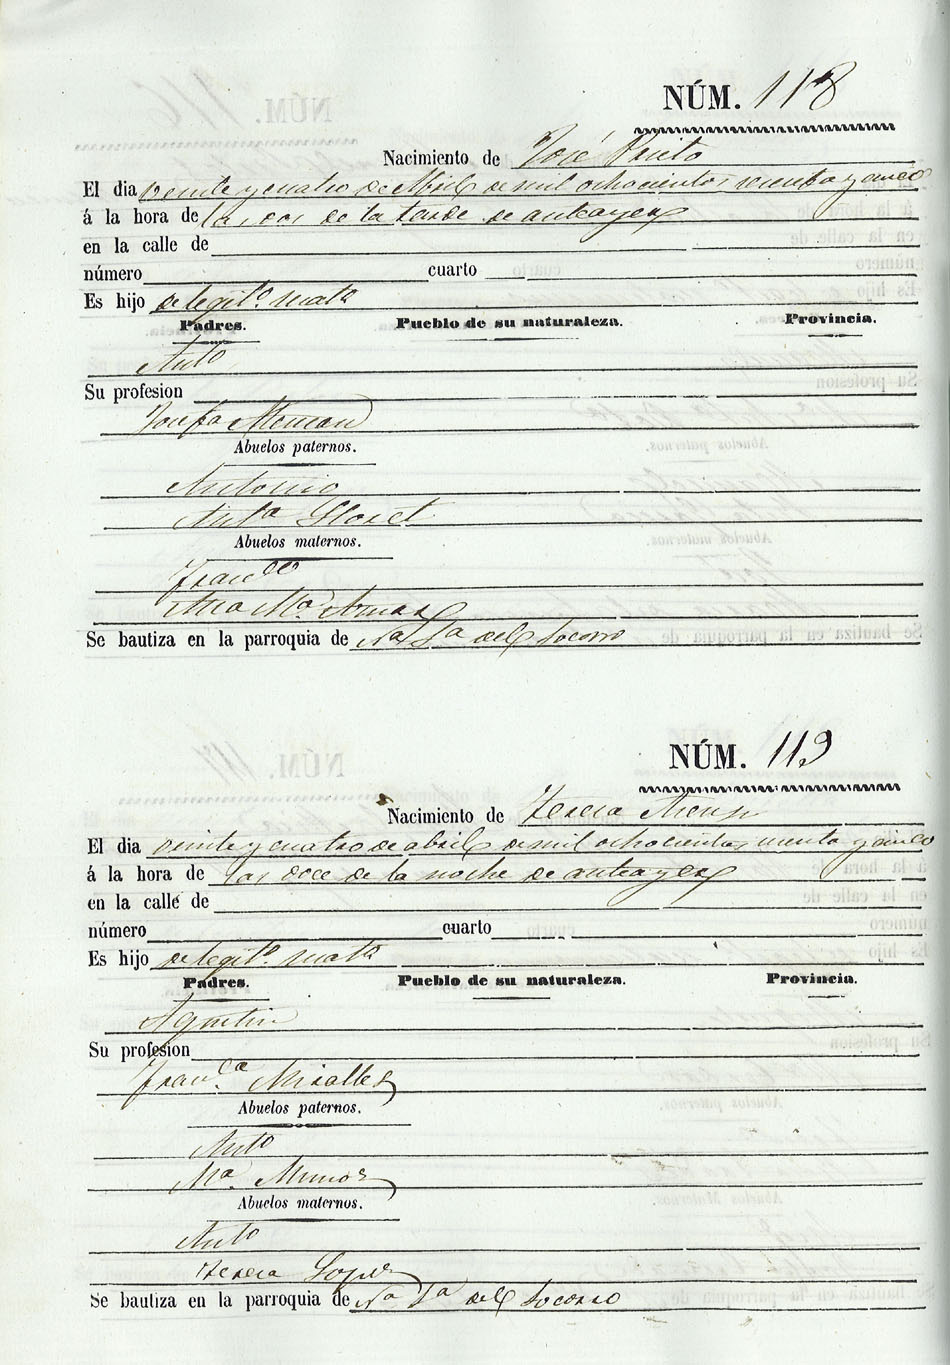 NÚM. 118
Nacimiento de José Prieto
El dia veinte y cuatro de Abril de mil ochocientos sesenta y cinco
á la hora de las dos de la tarde de anteayer
en la calle de
número cuarto
Es hijo de legit.º mat.º
Padres. Pueblo de su naturaleza. Provincia.
Ant.º
Su profesion
Josefa Aleman
Abuelos paternos.
Antonio
Ant.ª Lloret
Abuelos maternos.
Fran.co
Ana M.ª
Se bautiza en la parroquia de N.ª S.ª del Socorro
NÚM. 119
Nacimiento de Teresa Asensi
El dia veinte y cuatro de abril de mil ochocientos sesenta y cinco
á la hora de las doce de la noche de anteayer
en la calle de
número cuarto
Es hijo de legit.º mat.º
Padres. Pueblo de su naturaleza. Provincia.
Agustin
Su profesion
Fran.ca Miralles
Abuelos paternos.
Ant.º
M.ª Munos
Abuelos maternos.
Ant.º
Teresa Lopes
Se bautiza en la parroquia de N.ª S.ª del Socorro